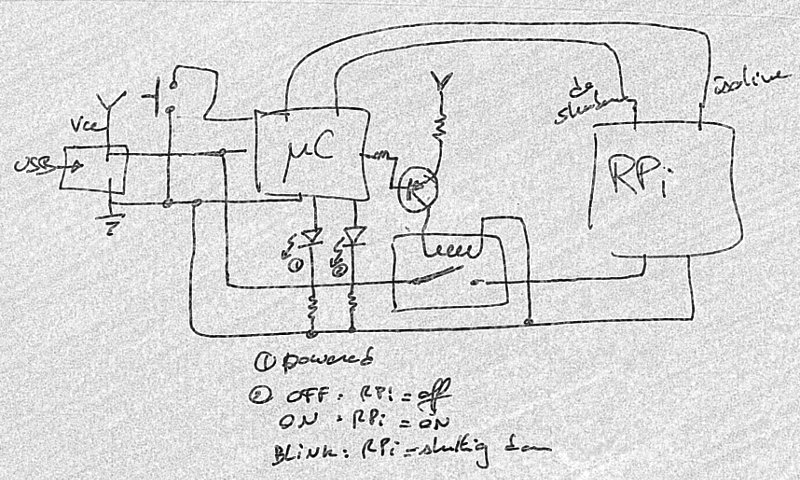 Vcc
USB
μC
do
shutdown
isalive
RPi
①
②
① powered
② OFF: RPi = off
ON: RPi = ON
BLINK: RPi = shutting down